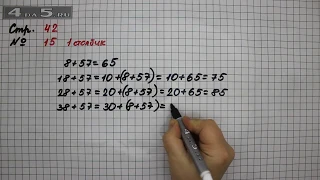 4 da 5.ru
Стр. 42
№ 15 1 столбик
8+57=65
18+57=10+(8+57)=10+65=75
28+57=20+(8+57)=20+65=85
38+57=30+(8+57)=